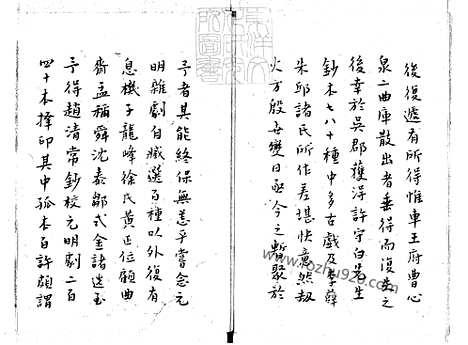 後復遞有所得惟車王府曹心
泉二曲庫散出者垂得而復失之
後幸於吳郡獲得許守白先生
鈔本七八十種中多古戲及李薛
朱邱諸氏所作差堪快意然劫
火方殷世變日亟今之暫聚於
予者其能終保無恙乎嘗念元
明雜劇自臧選百種以外復有
息機子龍峰徐氏黃正位顧曲
齋孟稱舜沈泰鄒式金諸選玉
予得趙清常鈔校元明劇二百
四十本擇印其中孤本百許頗謂